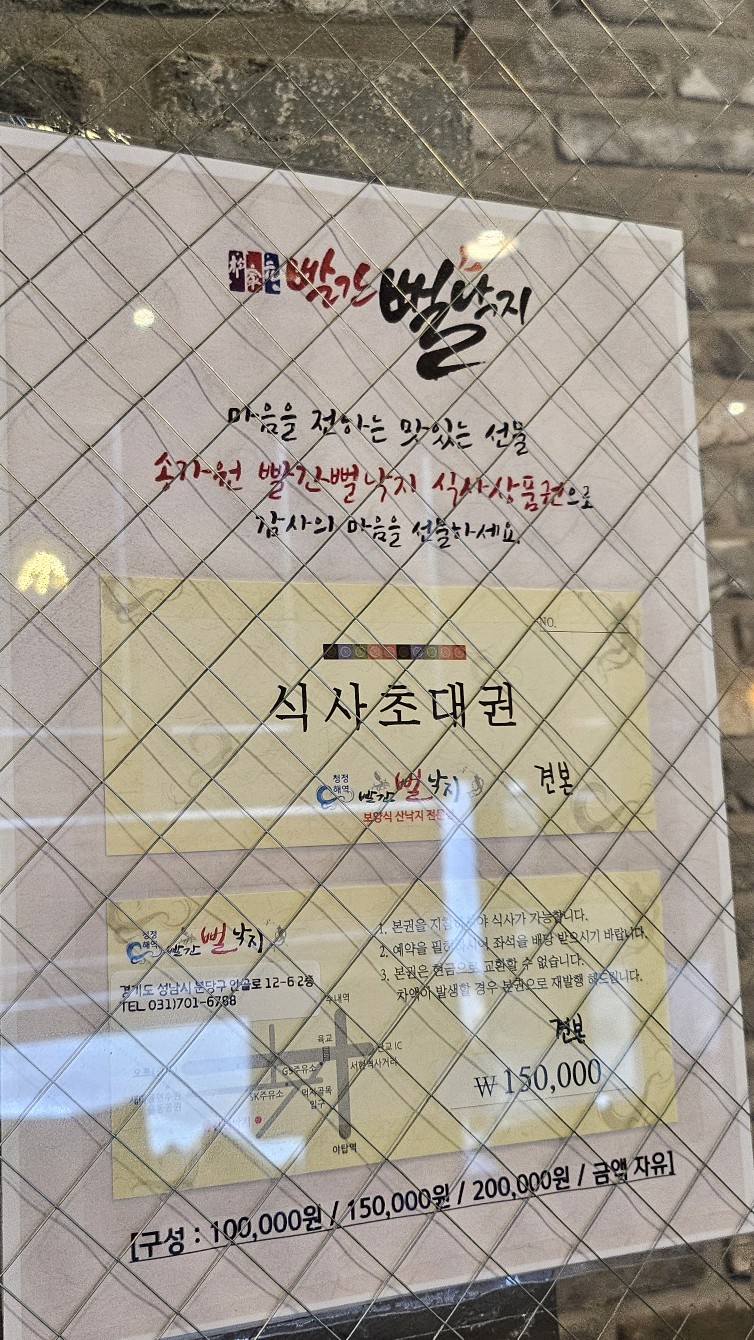 빨간 뻘낙지
마음을 전하는 맛있는 선물
송가원 빨간뻘낙지 식사상품권으로
감사의 마음을 선물하세요.
NO.
식사초대권
청정
해역
빨간 뻘낙지
견본
보양식 산낙지 전문점
청정
해역
빨간 뻘낙지
경기도 성남시 분당구 안골로 12-6 2층
TEL 031)701-6788
1. 본권을 야 식사가 가능합니다.
2. 예약을 좌석을 배당 받으시기 바랍니다.
3. 본권은 현금으로 교환할 수 없습니다.
차액이 발생할 경우 본권으로 재발행 해드립니다.
수내역
육교
IC
GS주유소
서현역사거리
SK주유소
먹자골목
입구
이탑역
견본
₩ 150,000
[구성 : 100,000원 / 150,000원 / 200,000원 / 금액 자유]